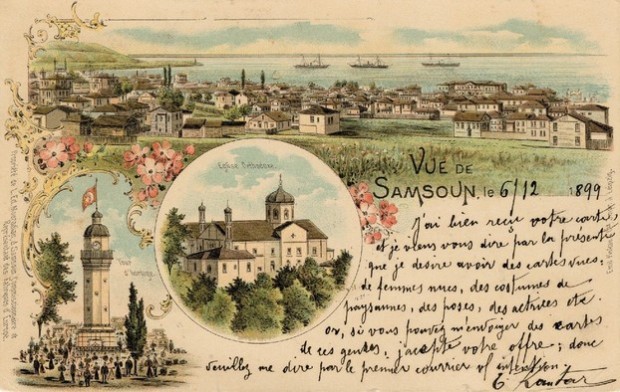 Eglise Orthodoxe.
Tour
d'horloge.
VUE DE
SAMSOUN, le 6/12 1899
J'ai bien reçu votre carte,
et je viens vous dire par la présente
que je desire avoir des cartes vues,
de femmes nues, des costumes de
paysannes, des poses, des actrices etc.
or, si vous pouvez m'envoyer des cartes
de ces genres, j'accepte votre offre; donc
Veuillez me dire par le premier courrier vos intentions